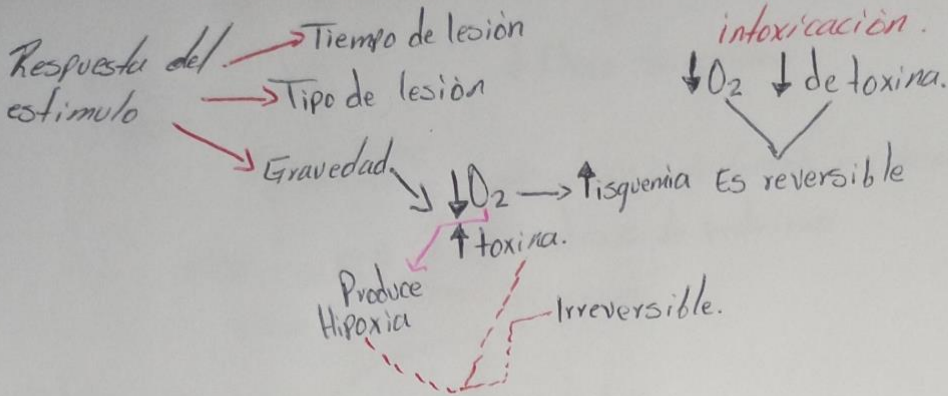 Respuesta del
estimulo
Tiempo de lesión
Tipo de lesión
Gravedad
↓O₂ → ↑isquemia
↑ toxina.
Produce
Hipoxia
Irreversible.
intoxicación.
↓O₂ ↓ de toxina.
Es reversible